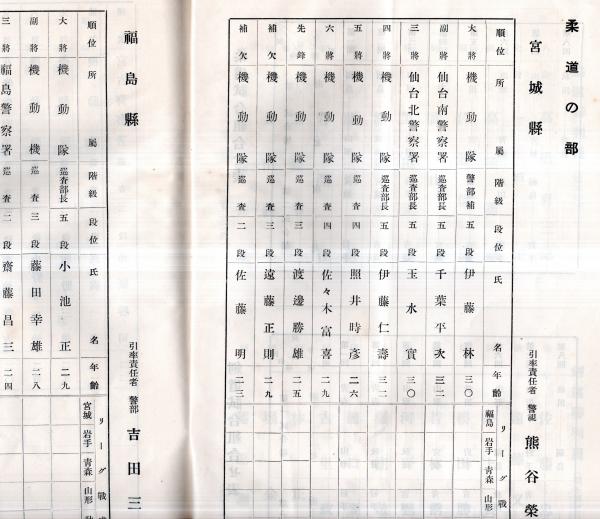 柔道の部
宮城縣
引率責任者 警視 熊谷榮
順位 所屬 階級 段位 氏名 年齡 リーグ戰
福島 岩手 青森 山形
大將 機動隊 警部補 五段 伊藤林 三〇
副將 仙台南警察署 巡査部長 五段 千葉平次 三二
三將 仙台北警察署 巡査部長 五段 玉水實 三〇
四將 機動隊 巡査部長 五段 伊藤仁壽 三二
五將 機動隊 巡査 四段 照井時彦 二六
六將 機動隊 巡査 四段 佐々木富喜 二九
先鋒 機動隊 巡査 三段 渡邊勝雄 二五
補欠 機動隊 巡査 三段 遠藤正則 二九
補欠 機動隊 巡査 二段 佐藤明 二三
福島縣
引率責任者 警部 吉田三
順位 所屬 階級 段位 氏名 年齡 リーグ戰
宮城 岩手 青森 山形
大將 機動隊 巡査部長 五段 小池正 二九
副將 機動機 巡査 三段 藤田幸雄 二八
三將 福島警察署 巡査 二段 齋藤昌三 二四